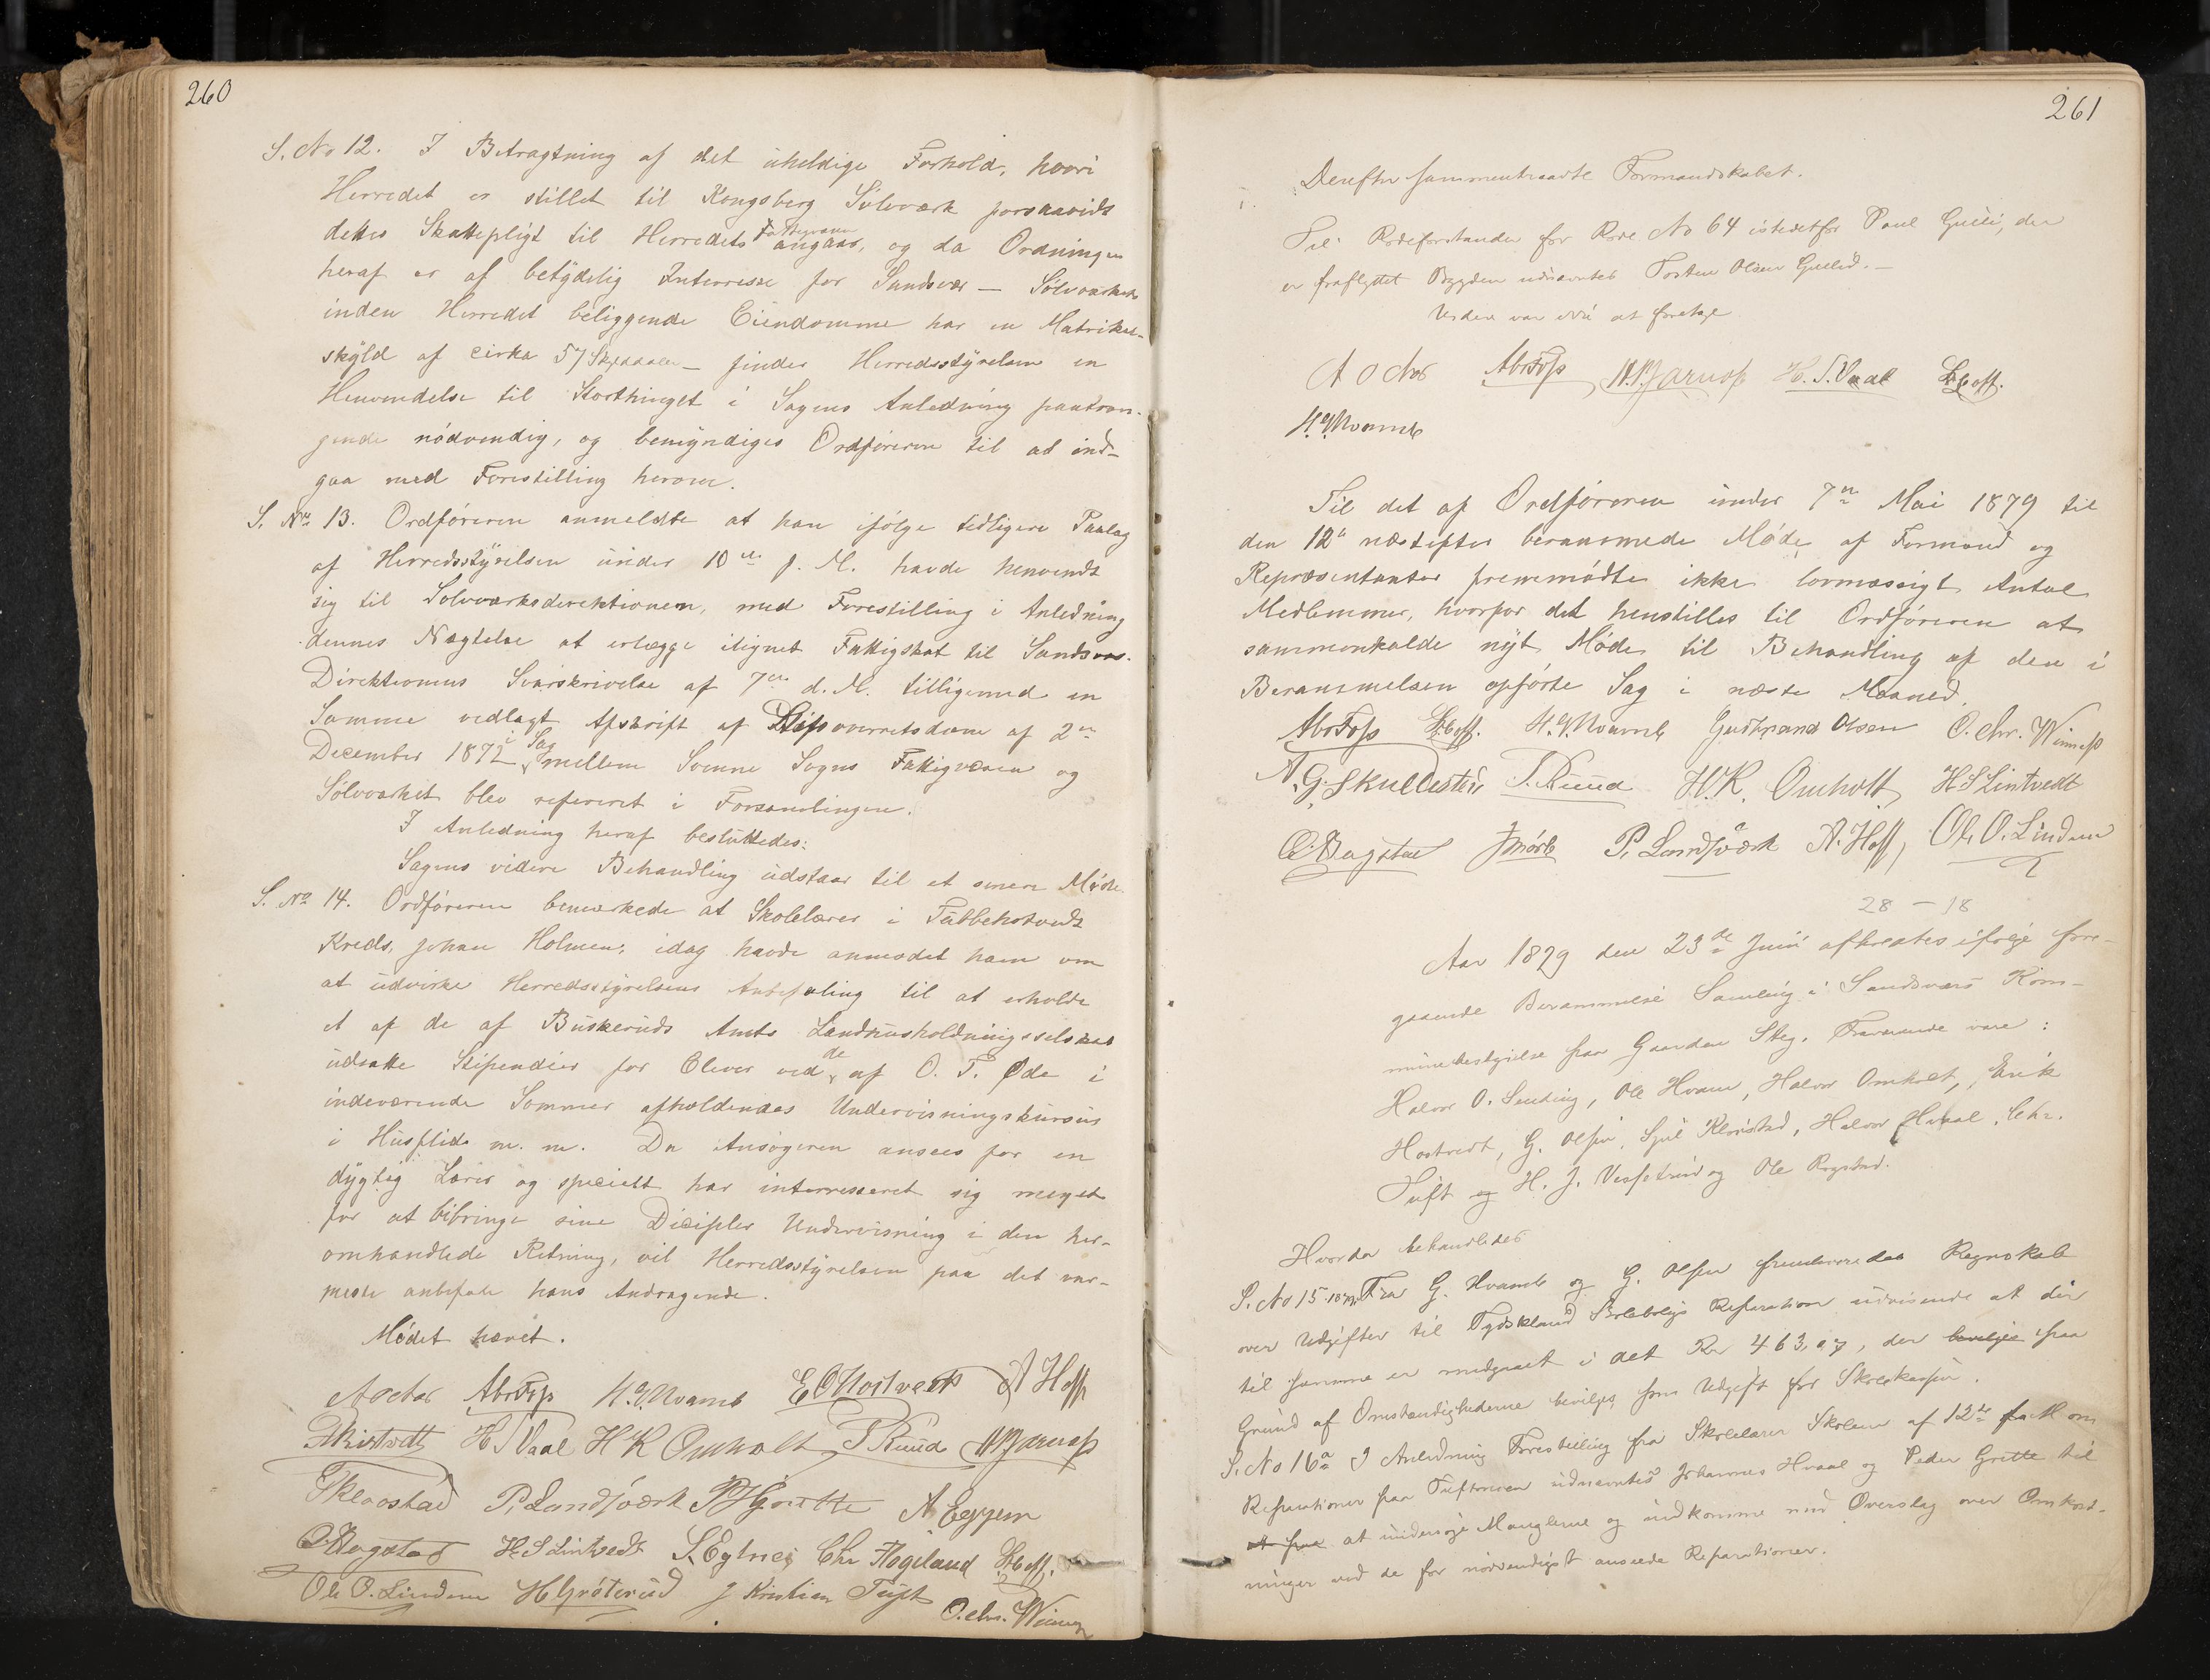 260
S. No 12. I Betragtning af det uheldige Forhold, hvori
Herredet er stillet til Kongsberg Sölvværk forsaavidt
dettes Skattepligt til Herredets Fattigvæsen angaar, og da Ordningen
heraf er af betydelig Interresse for Sandsvær — Sølvværkets
inden Herredet beliggende Eiendomme har en Matrikul-
skyld af cirka 57 Skpdaler — finder Herredsstyrelsen en
Henvendelse til Storthinget i Sagens Anledning paatræn-
gende nödvendig, og bemyndiges Ordføreren til at ind-
gaa med Forestilling herom.
S. No 13. Ordføreren anmeldte at han ifølge tidligere Paalæg
af Herredsstyrelsen under 10de f. M. havde henvendt
sig til Sölvværksdirektionen, med Forestilling i Anledning
dennes Nægtelse at erlægge ilignet Fattigskat til Sandsvær.
Direktionens Svarskrivelse af 7de d. M. tilligemed en
Samme vedlagt Afskrift af Stiftsoverretsdom af 2en
December 1872 i Sag mellem Soenne Sogns Fattigvæsen og
Sölvværket blev refereret i Forsamlingen.
I Anledning heraf besluttedes:
Sagens videre Behandling udstaar til et senere Møde.
S. No 14. Ordføreren bemærkede at Skolelærer i
Kreds, Johan Holmen, idag havde anmodet ham om
at udvirke Herredsstyrelsens Anbefaling til at erholde
et af de af Buskeruds Amts Landhusholdningsselskab
udsatte Stipendier for Elever ved de af O. T. Øde i
indeværende Sommer afholdendes Undervisningskursus
i Husflid m. m. Da Ansøgeren ansees for en
dygtig Lærer og specielt har interresseret sig meget
for at bibringe sine Diciple Undervisning i den her-
omhandlede Retning, vil Herredsstyrelsen paa det var-
meste anbefale hans Andragende.
Mödet hævet.
AbrFoss H. G. Hvamb E O Hostvedt A Hoff
H T Vaal H K Omholt T Ruud
T Klovstad P. Landsværk P H Grette A Eggem
O Ragstad H. S Lintvedt Chr Hogeland
Ole O. Linden H Gröterud J Kristian Tuft O. Chr. Winness
261
Derefter sammentraadte Formandskabet.
Til Rodeforstander for Rode No 64 istedetfor Paul Gulli, der
er fraflyttet Bygden udnævntes Torsten Olsen Gulli. —
Videre var ei at foretage
AbrFoss H. T. Vaal
H. G. Hvamb
Til det af Ordföreren under 7de Mai 1879 til
den 12te næstefter berammede Møde af Formænd og
Repræsentanter fremmødte ikke lovmæssigt Antal
Medlemmer, hvorfor det henstilles til Ordføreren at
sammenkalde nyt Møde til Behandling af den i
Berammelsen opförte Sag i næste Maaned.
AbrFoss H. G. Hvamb Gudbrand Olsen O. Chr. Winness
A. G. Skullestad T. Ruud H. K. Omholt H S Lintvedt
O. Ragstad J Mörk P. Landsværk A. Hoff, Ole O. Linden
28 – 18
Aar 1879 den 23de Juni afholdtes ifölge fore-
gaaende Berammelse Samling i Sandsværs Kom-
munebestyrelse paa Gaarden Steg. Fraværende vare:
Halvor O. Ole Hvam, Halvor Omholt, Erik
Hostvedt, G. Olsen, Syul Klovstad, Halvor Hvaal, Chr.
Tuft og H. J. og Ole Ragstad.
Hvorda behandledes
S. No 15 1879. Fra G. Hvamb og G. Olsen fremlagdes Regnskab
over Udgifter til Tydskland Skoleboligs Reparation udvisende at der
til samme er medgaaet i det Kr 463,07, der bevilges paa
Grund af Omstændighederne bevilges som Udgift for Skolekassen.
S. No 16a I Anledning Forestilling fra Skolelærer Skolem af 12te f. M om
Reparationer paa Tuftmoen udnævntes Johannes Hvaal og Peder Grette til
at paa at undersøge Manglerne og indkomme med Overslag over Omkost-
ninger ved de for nødvendigst anseede Reparationer.